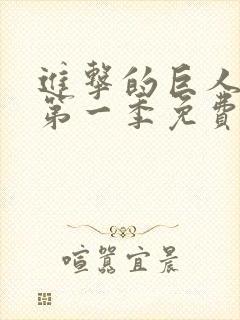 進擊的巨人
第一季免費
喧囂宜晨